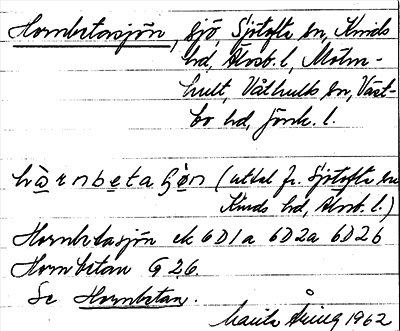 Hornbetasjön, sjö, Sjötofta sn, Kinds
hd, Älvsb. l., Mölne-
hult, Våthults sn, Väst-
bo hd, Jönk. l.
hàrnbeta (uttal fr. Sjötofta sn
Kinds hd, Älvsb. l.)
Hornbetasjön ek 6D1a 6D2a 6D2b
Hornbetan G 26.
Se Hornbetan.
1962